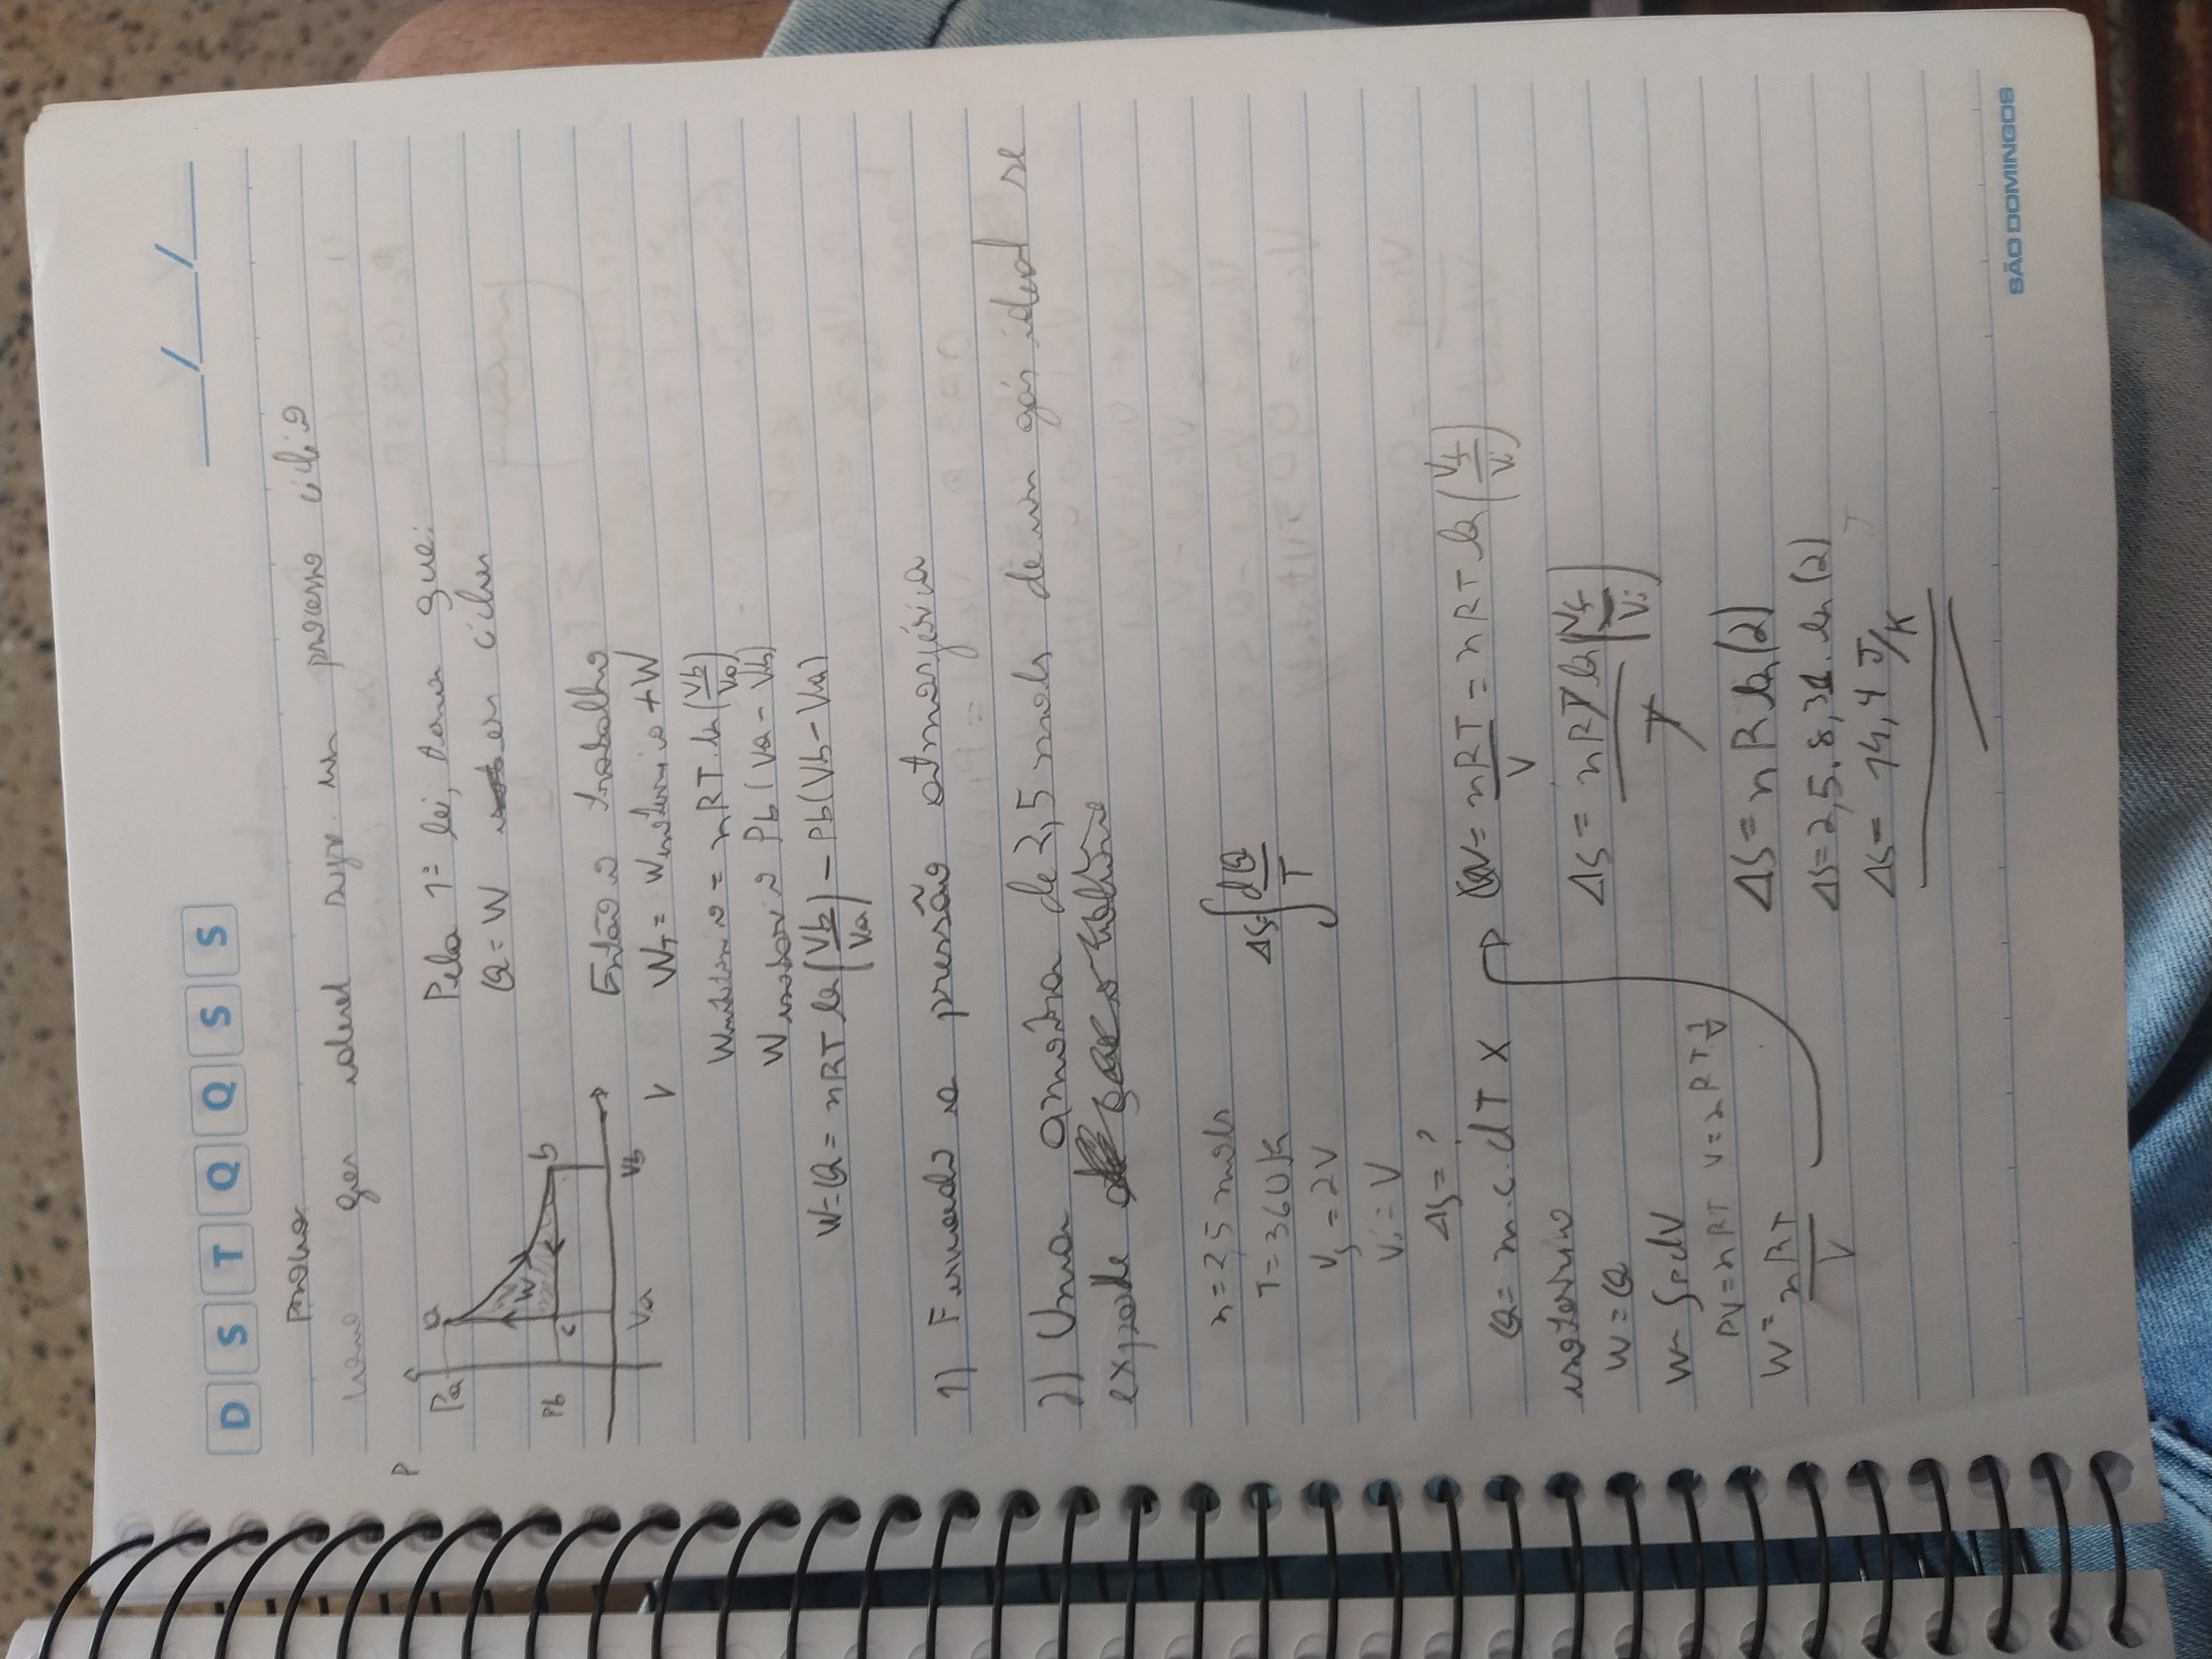 D S T Q Q S S
__/__/__
prova
gas ideal um processo cíclico
P
Pa
a
Pb
c
W
b
Va
Vb
V
Pela 1ª lei, temos que:
Q = W em ciclos
Então o trabalho
WT = Wisotérmico + W
Wisotérmico = nRT.ln(Vb/Va)
Wisobárico Pb(Va - Vb)
W=Q = nRT ln(Vb/Va) - Pb(Vb-Va)
1) Fervendo a pressão atmosférica
2) Uma amostra de 2,5 mols de um gás ideal se
expande
n = 2,5 mols
T = 360K
Vf = 2V
Vi = V
ΔS = ?
ΔS = ∫dQ/T
Q = m.c.dT X
isotérmico
W = Q
W= ∫pdV
PV = nRT
W = nRT/V
W = nRT/V = nRT ln(Vf/Vi)
ΔS = nRT ln(Vf/Vi)
T
ΔS = nR ln(2)
ΔS = 2,5. 8,31. ln(2)
ΔS = 14,4 J/K
SÃO DOMINGOS